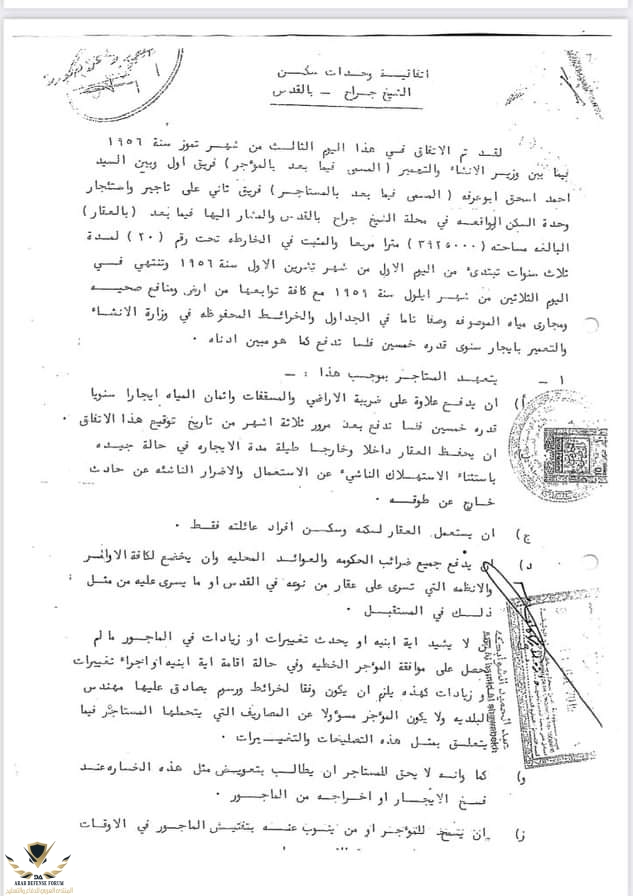 اتفاقية وحدات سكن
الشيخ جراح - بالقدس
لقد تم الاتفاق في هذا اليوم الثالث من شهر تموز سنة ١٩٥٦
فيما بين وزير الانشاء والتعمير (المسمى فيما بعد بالمؤجر) فريق اول وبين السيد
احمد اسحق ابوعرفه (المسمى فيما بعد بالمستاجر) فريق ثاني على تاجير واستئجار
وحدة السكن الواقعه في محلة الشيخ جراح بالقدس والمشار اليها فيما بعد (بالعقار)
البالغه مساحته (٣٩٢٥٠٠٠) مترا مربعا والمثبت في الخارطه تحت رقم (٢٠) لمدة
ثلاث سنوات تبتدىء من اليوم الاول من شهر تشرين الاول سنة ١٩٥٦ وتنتهي في
اليوم الثلاثين من شهر ايلول سنة ١٩٥٩ مع كافة توابعها من ارض ومنافع صحيه
ومجارى مياه الموصوفه وصفا تاما في الجداول والخرائط المحفوظه في وزارة الانشاء
والتعمير بايجار سنوى قدره خمسين فلسا تدفع كما هو مبين ادناه .
١ - يتعهد المستاجر بموجب هذا : -
أ) ان يدفع علاوة على ضريبة الاراضي والمسقفات واثمان المياه ايجارا سنويا
قدره خمسين فلسا تدفع بعد مرور ثلاثة اشهر من تاريخ توقيع هذا الاتفاق .
ان يحفظ العقار داخلا وخارجا طيلة مدة الايجاره في حالة جيده
باستثناء الاستهلاك الناشيء عن الاستعمال والاضرار الناشئه عن حادث
خارج عن طوقه .
ج) ان يستعمل العقار لسكنه وسكن افراد عائلته فقط .
د) ان يدفع جميع ضرائب الحكومه والعوائد المحليه وان يخضع لكافة الاوامر
والانظمه التي تسرى على عقار من نوعه في القدس او ما يسرى عليه من مثل
ذلك في المستقبل .
لا يشيد اية ابنيه او يحدث تغييرات او زيادات في الماجور ما لم
يحصل على موافقة المؤجر الخطيه وفي حالة اقامة اية ابنيه او اجراء تغييرات
و زيادات كهذه يلزم ان يكون وفقا لخرائط ورسم يصادق عليها مهندس
البلديه ولا يكون المؤجر مسؤولا عن المصاريف التي يتحملها المستاجر فيما
يتعلق بمثل هذه التصليحات والتغييرات .
و) كما وانه لا يحق للمستاجر ان يطالب بتعويض مثل هذه الخساره عند
فسخ الايجار او اخراجه من الماجور .
ز) ان يسمح للمؤجر او من ينوب عنه بتفتيش الماجور في الاوقات
عبد الحميد الشوابكه
DA
ARAB DEFENSE FORUM